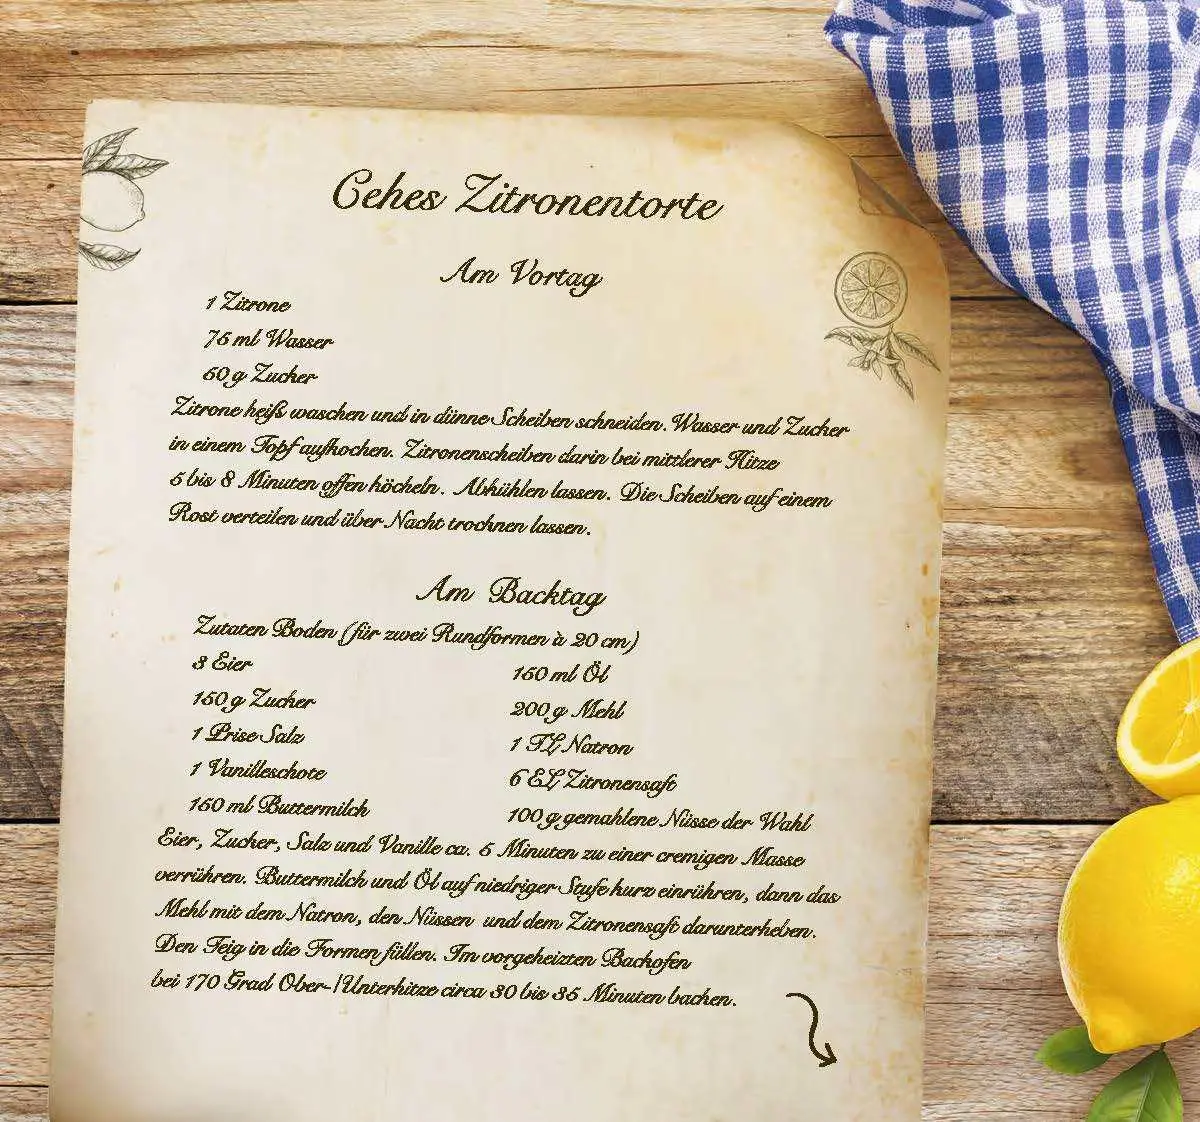 Cehes Zitronentorte
Am Vortag
1 Zitrone
75 ml Wasser
60 g Zucker
Zitrone heiß waschen und in dünne Scheiben schneiden. Wasser und Zucker
in einem Topf aufkochen. Zitronenscheiben darin bei mittlerer Hitze
5 bis 8 Minuten offen köcheln. Abkühlen lassen. Die Scheiben auf einem
Rost verteilen und über Nacht trocknen lassen.
Am Backtag
Zutaten Boden (für zwei Rundformen à 20 cm)
3 Eier
150 g Zucker
1 Prise Salz
1 Vanilleschote
150 ml Buttermilch
150 ml Öl
200 g Mehl
1 TL Natron
6 EL Zitronensaft
100 g gemahlene Nüsse der Wahl
Eier, Zucker, Salz und Vanille ca. 5 Minuten zu einer cremigen Masse
verrühren. Buttermilch und Öl auf niedriger Stufe kurz einrühren, dann das
Mehl mit dem Natron, den Nüssen und dem Zitronensaft darunterheben.
Den Teig in die Formen füllen. Im vorgeheizten Backofen
bei 170 Grad Ober-/Unterhitze circa 30 bis 35 Minuten backen.